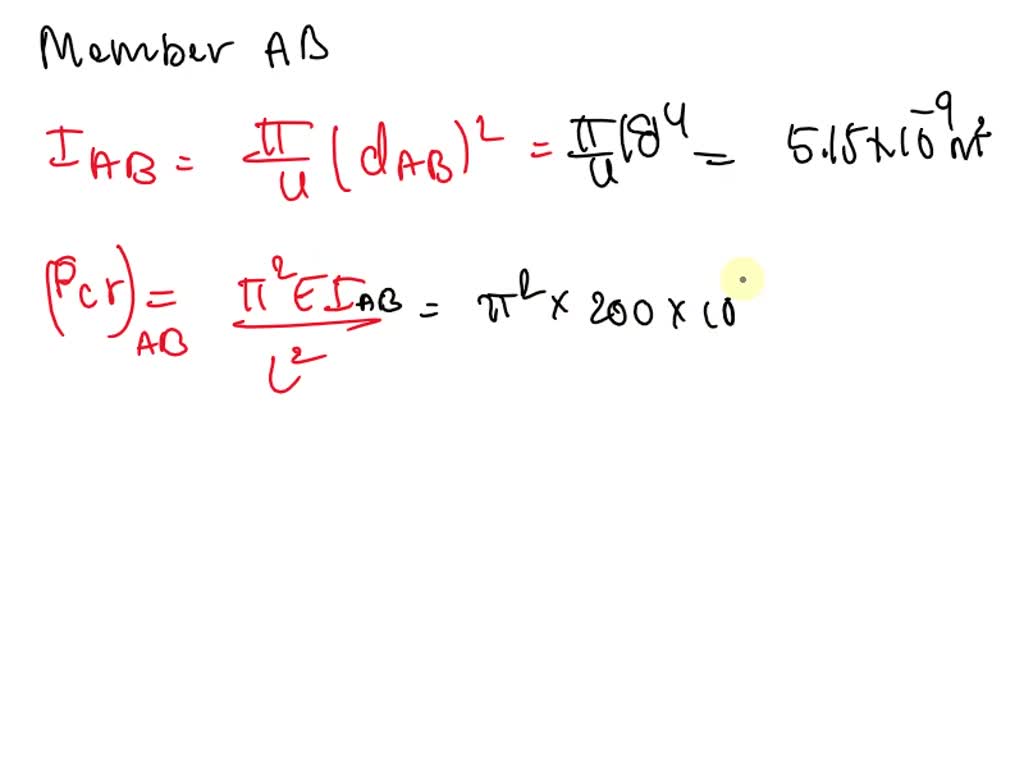 Member AB
I_AB = π/4 (d_AB)² = π/4 (8)⁴ = 5.15×10⁻⁹ m²
(Pcr)_AB = π²EI_AB / L² = π² × 200 × 10